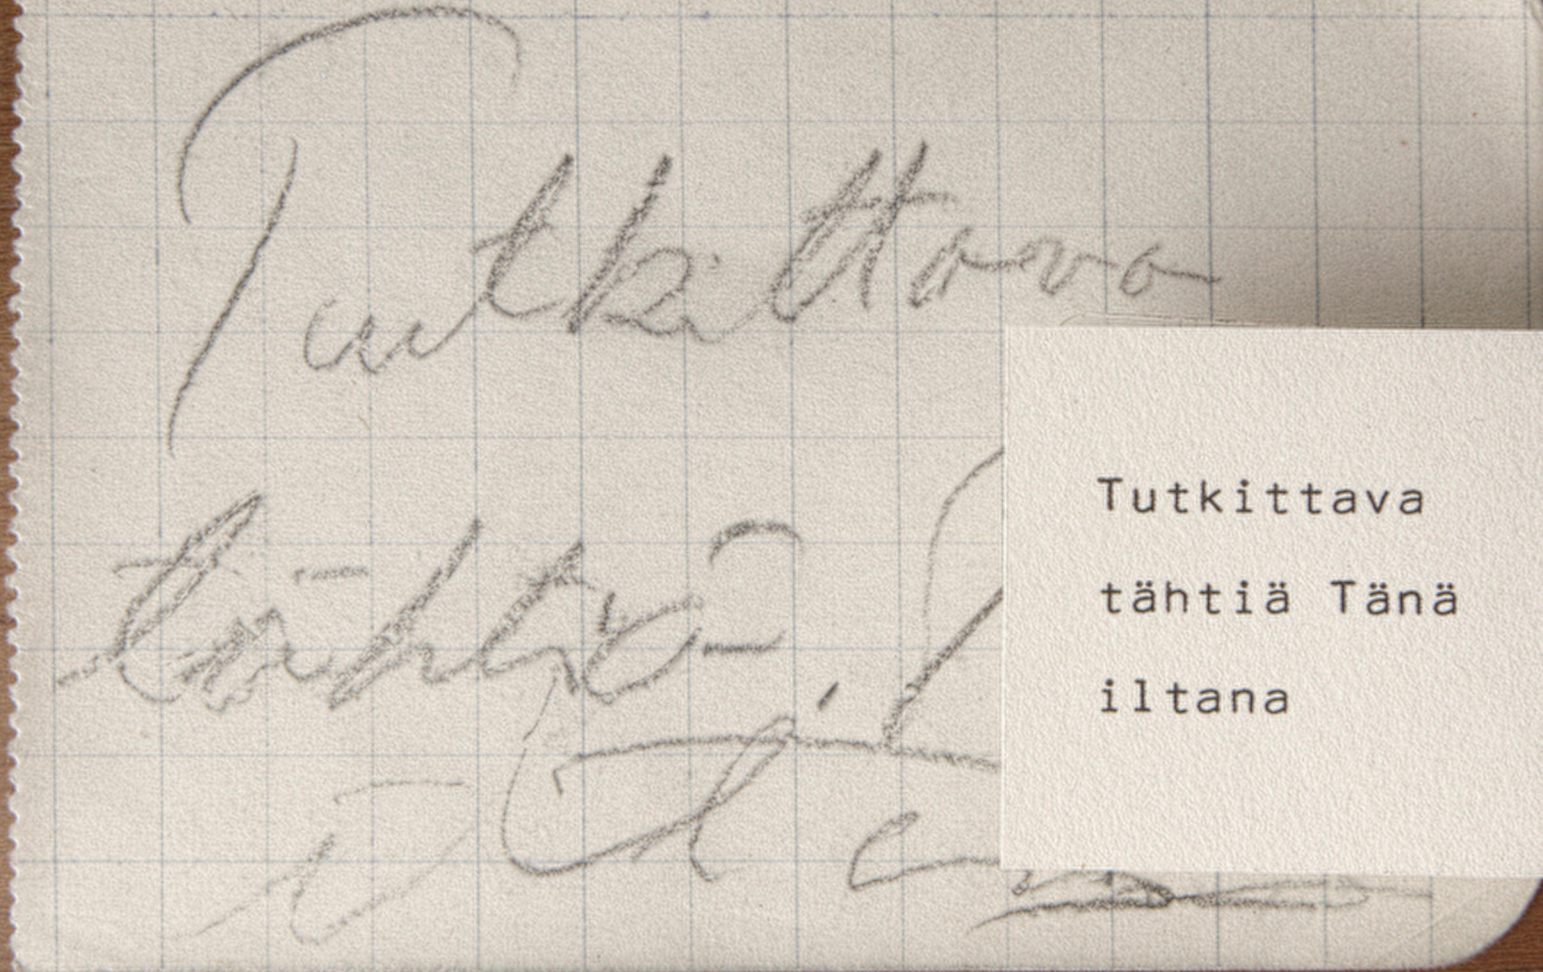 Tutkittava
tähtiä
Tutkittava
tähtiä Tänä
iltana